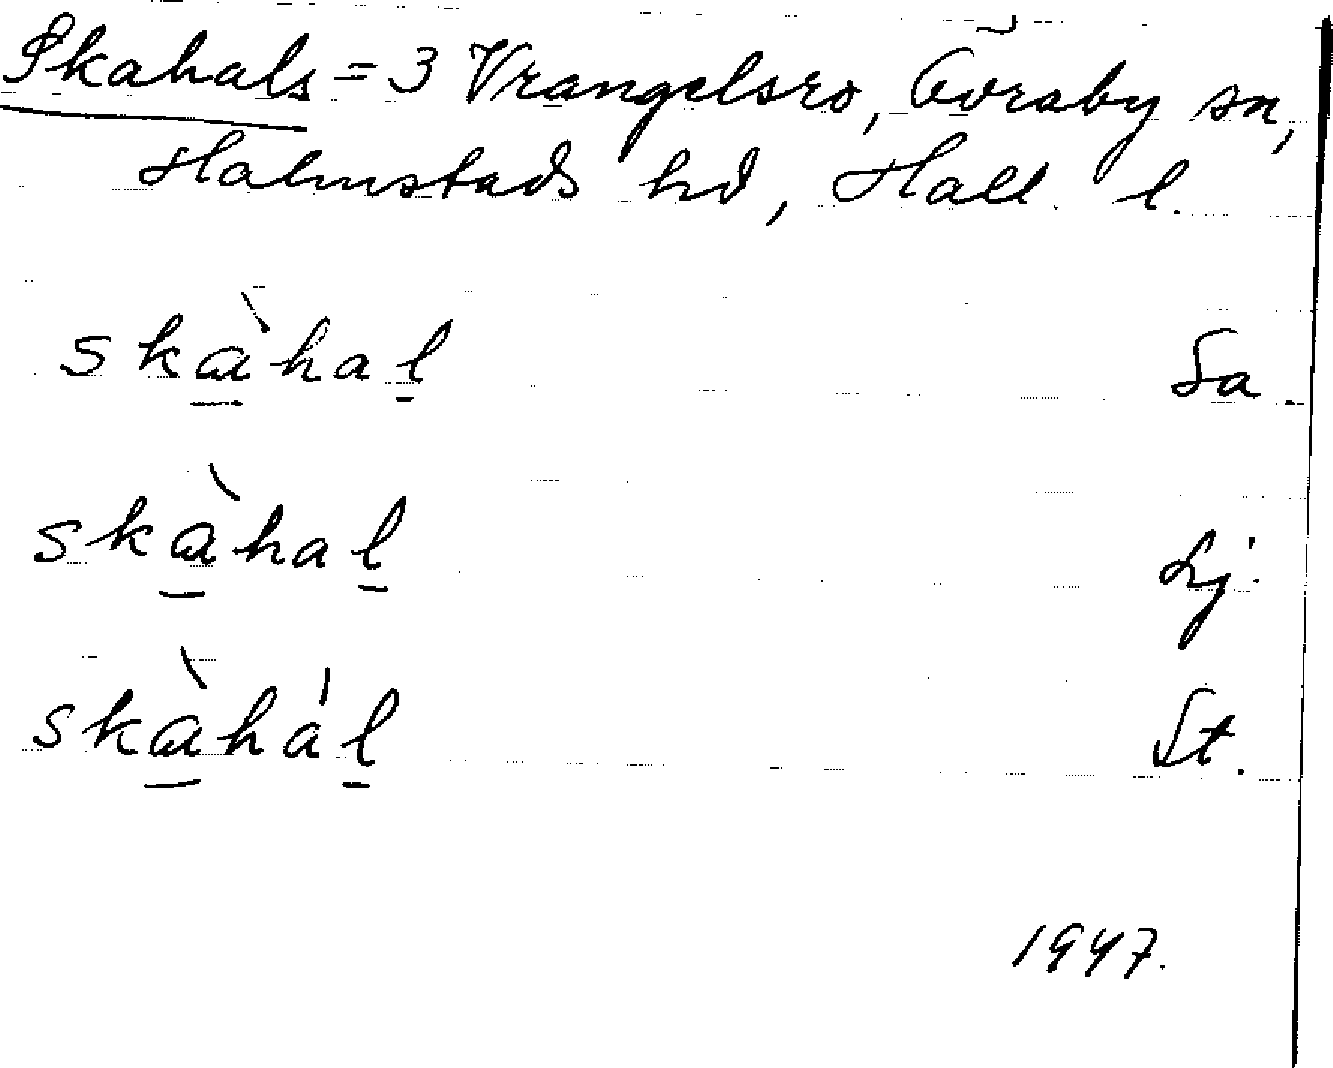 Skahals = 3 Vrangelsro, Övraby sn,
Halmstads hd, Hall. l.
skàhal Sa.
skàhal Lj.
skàhál St.
1947.